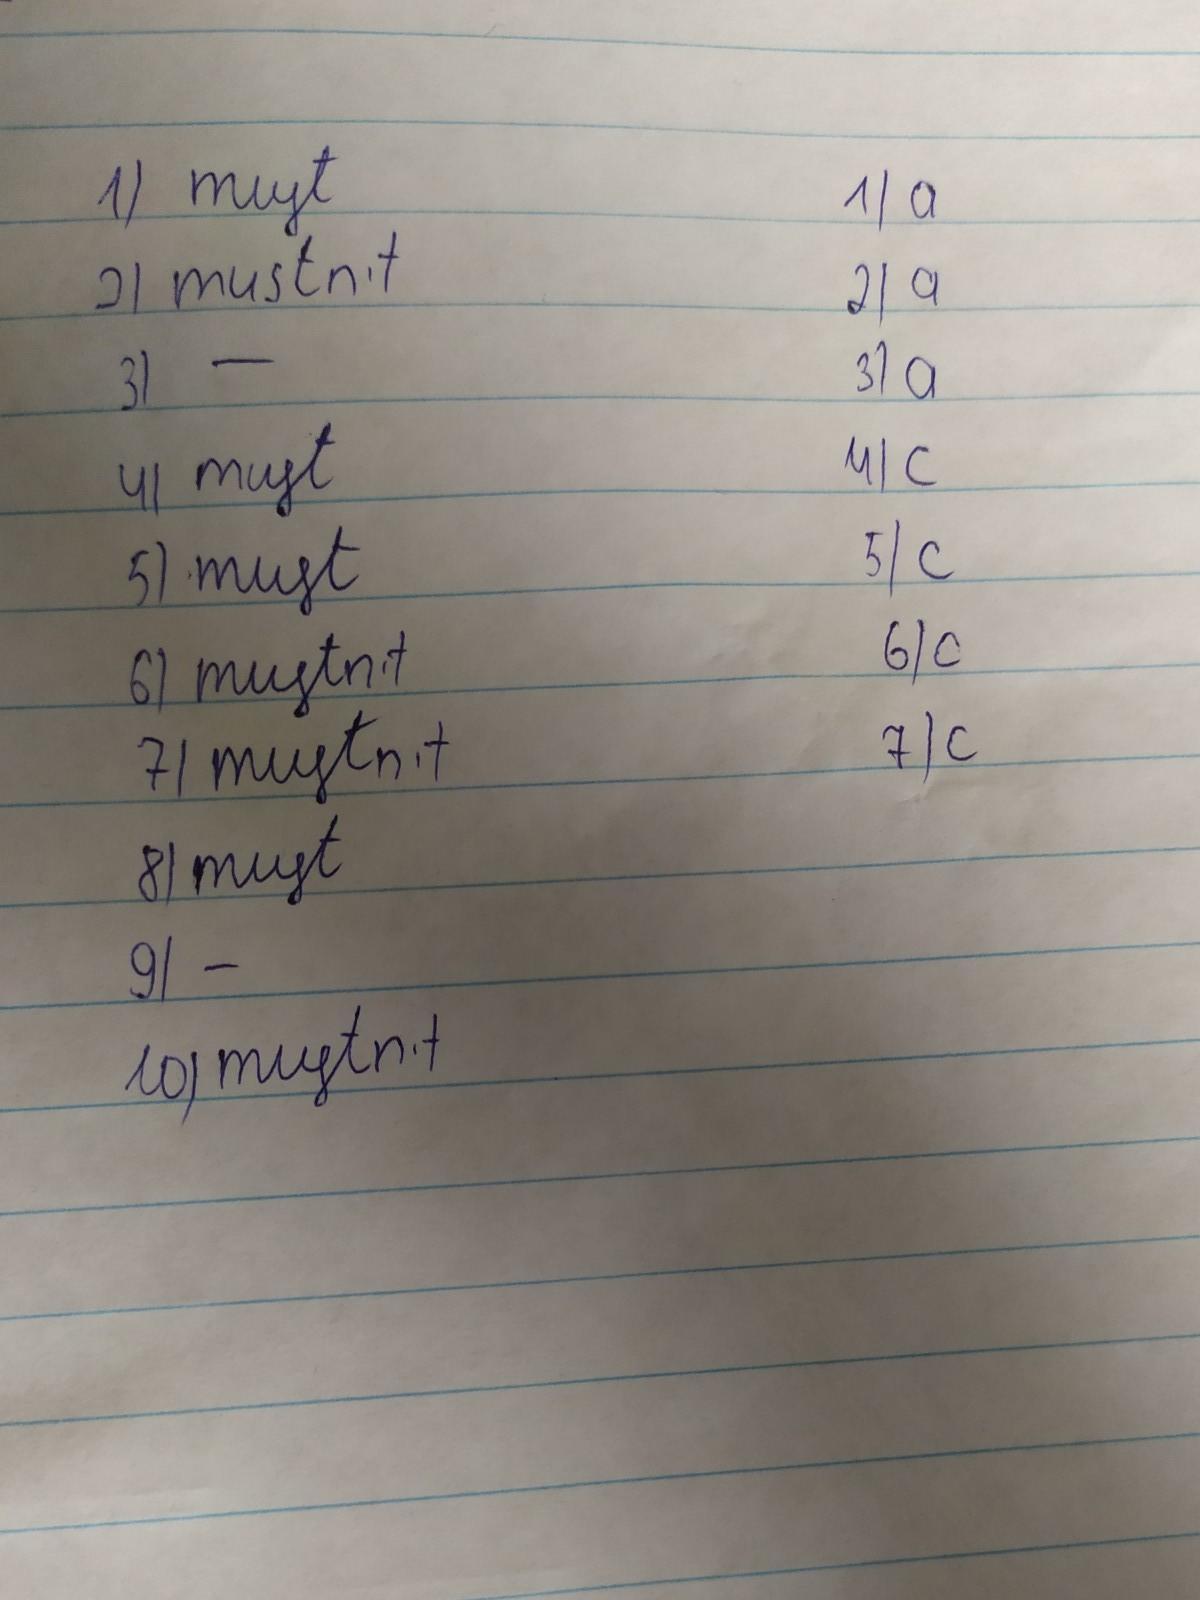 1) must
2) mustn't
3) —
4) must
5) must
6) mustn't
7) mustn't
8) must
9) —
10) mustn't
1) a
2) a
3) a
4) c
5) c
6) c
7) c